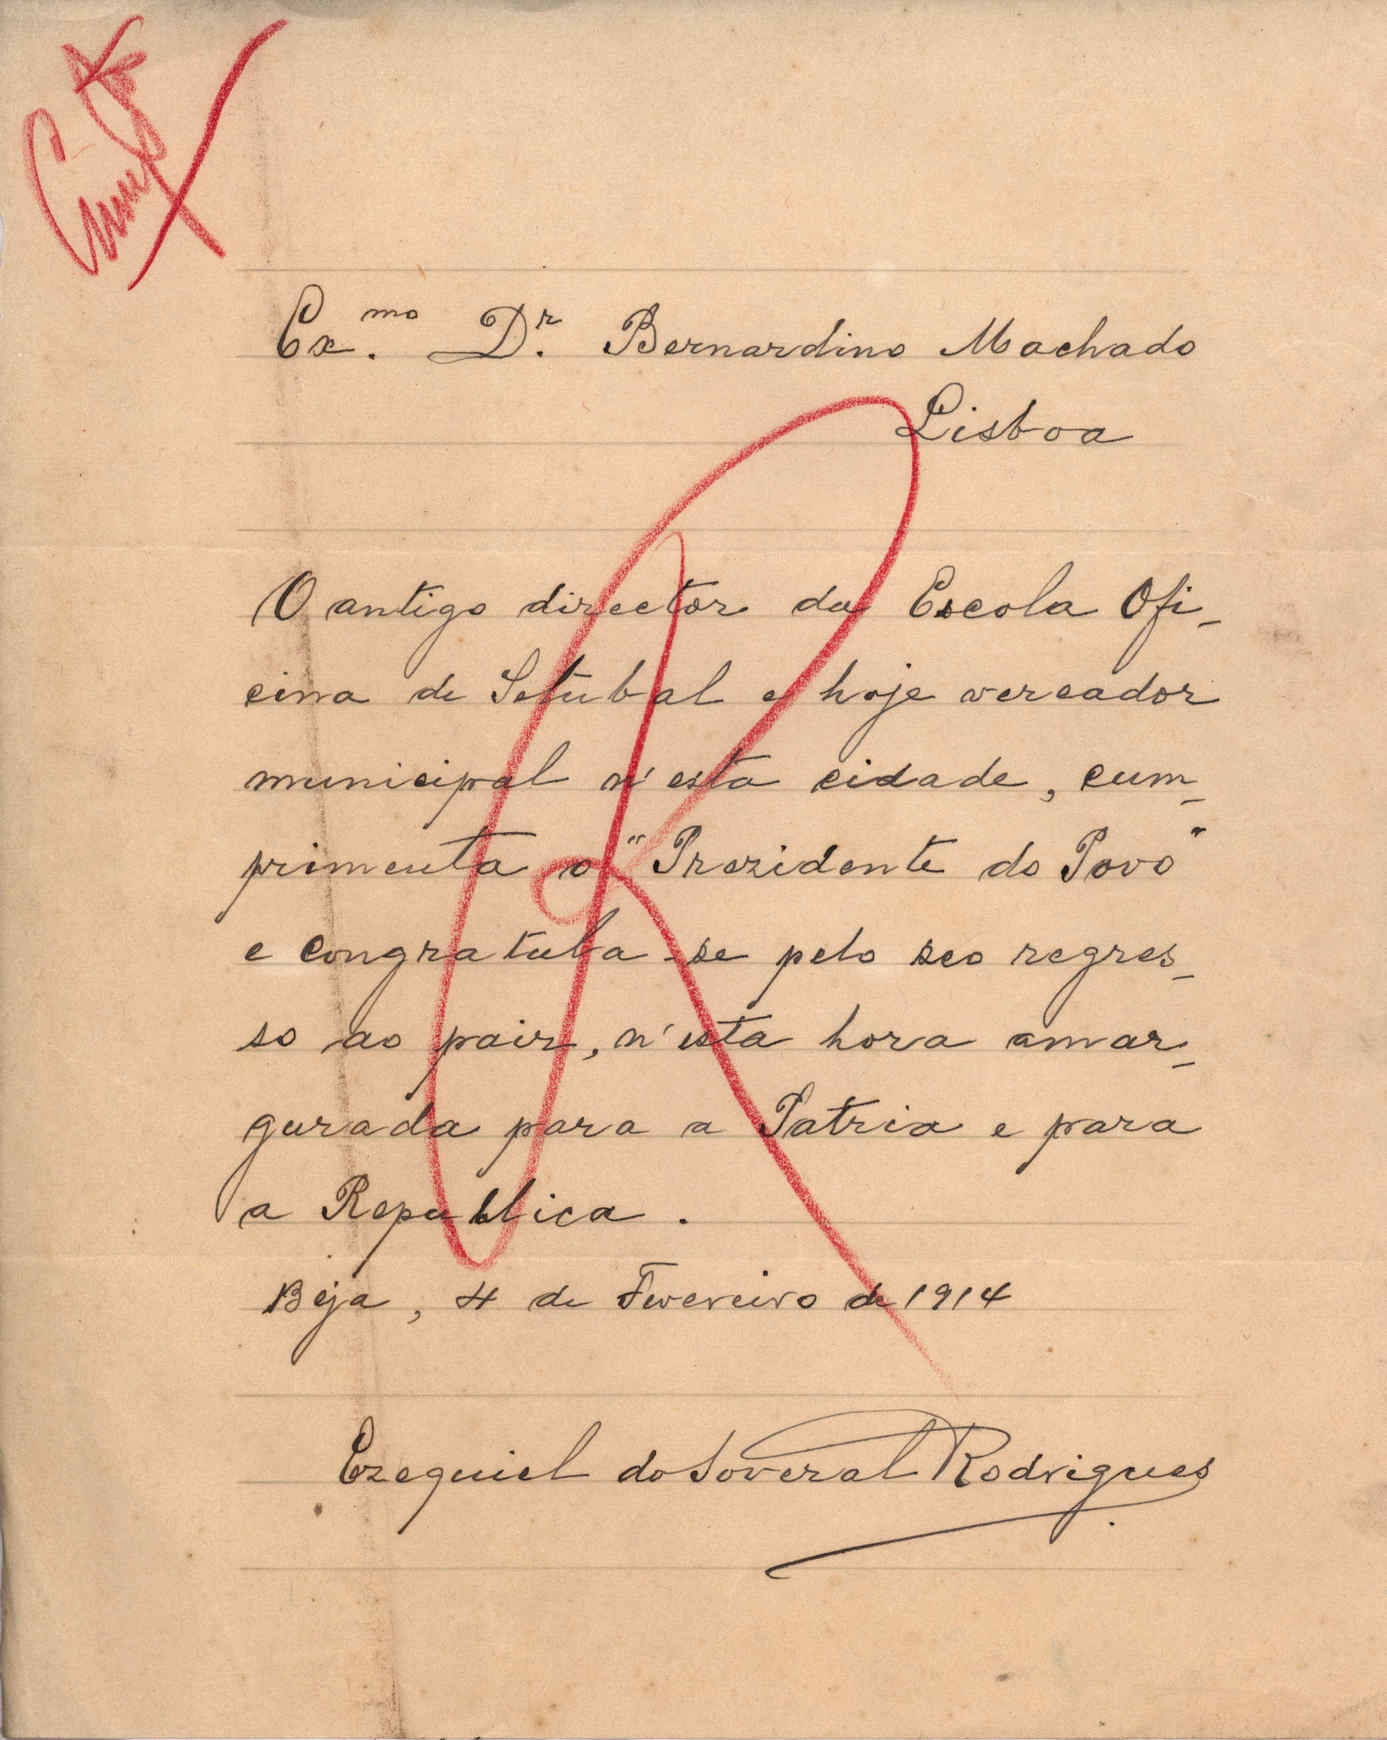 Ex.mo Dr. Bernardino Machado
Lisboa
O antigo director da Escola Ofi-
cina de Setubal e hoje vereador
municipal n'esta cidade, cum-
primenta o "Prezidente do Povo"
e congratula-se pelo seo regres-
so ao paiz, n'esta hora amar-
gurada para a Patria e para
a Republica.
Beja, 4 de Fevereiro de 1914
Ezequiel do Soveral Rodrigues
R